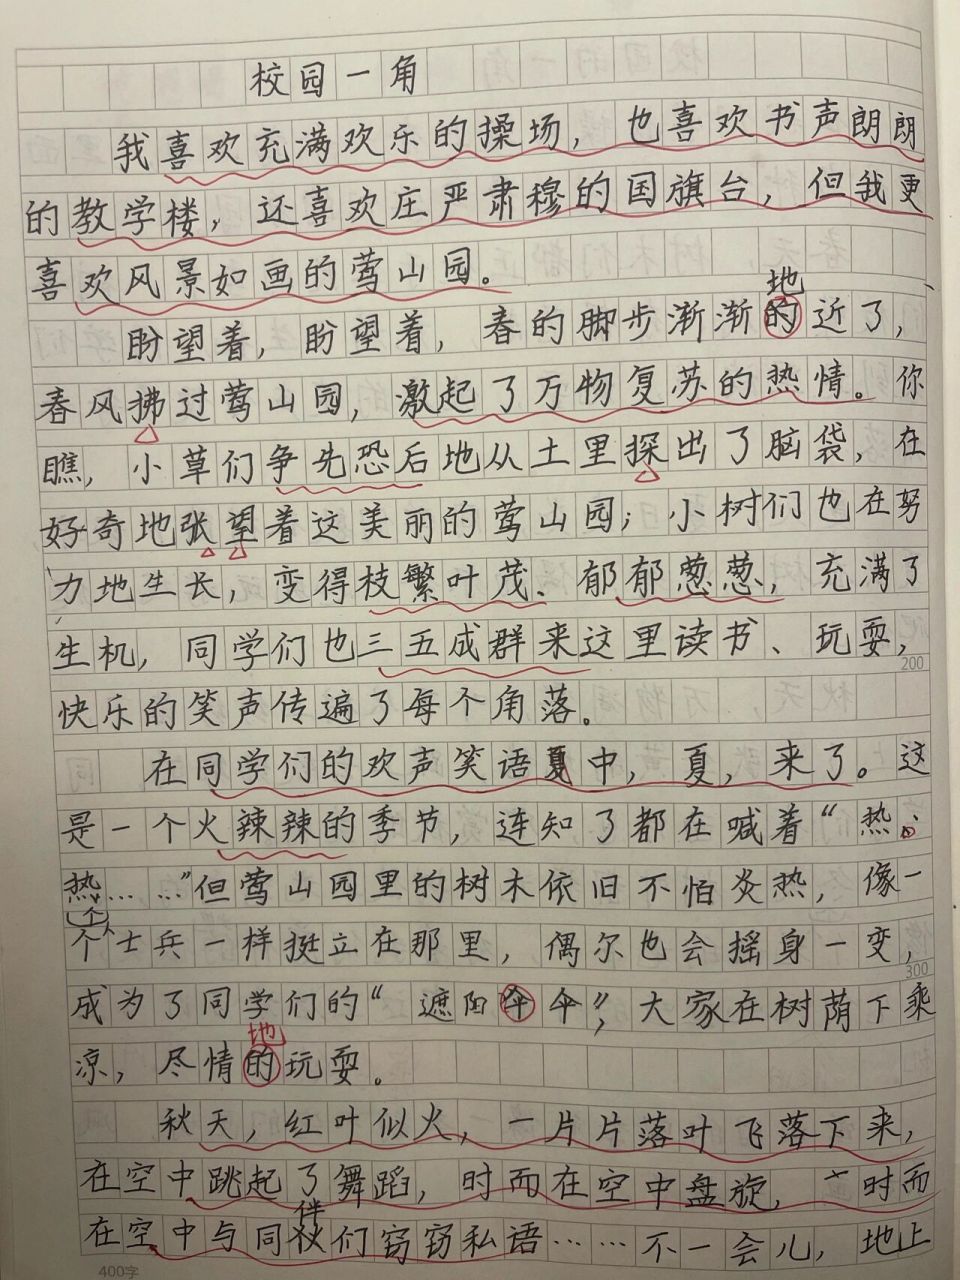 校园一角
我喜欢充满欢乐的操场，也喜欢书声朗朗
的教学楼，还喜欢庄严肃穆的国旗台，但我更
喜欢风景如画的莺山园。
地
盼望着，盼望着，春的脚步渐渐的近了，
春风拂过莺山园，激起了万物复苏的热情。你
瞧，小草们争先恐后地从土里探出了脑袋，在
好奇地张望着这美丽的莺山园；小树们也在努
力地生长，变得枝繁叶茂、郁郁葱葱，充满了
生机，同学们也三五成群来这里读书、玩耍，
200
快乐的笑声传遍了每个角落。
在同学们的欢声笑语夏中，夏，来了。这
是一个火辣辣的季节，连知了都在喊着“热、
热……”但莺山园里的树木依旧不怕炎热，像一
个
个士兵一样挺立在那里，偶尔也会摇身一变，
300
成为了同学们的“遮阳伞伞”，大家在树荫下乘
地
凉，尽情的玩耍。
秋天，红叶似火，一片片落叶飞落下来，
在空中跳起了舞蹈，时而在空中盘旋，时而
伴
在空中与同伙们窃窃私语……不一会儿，地上
400字